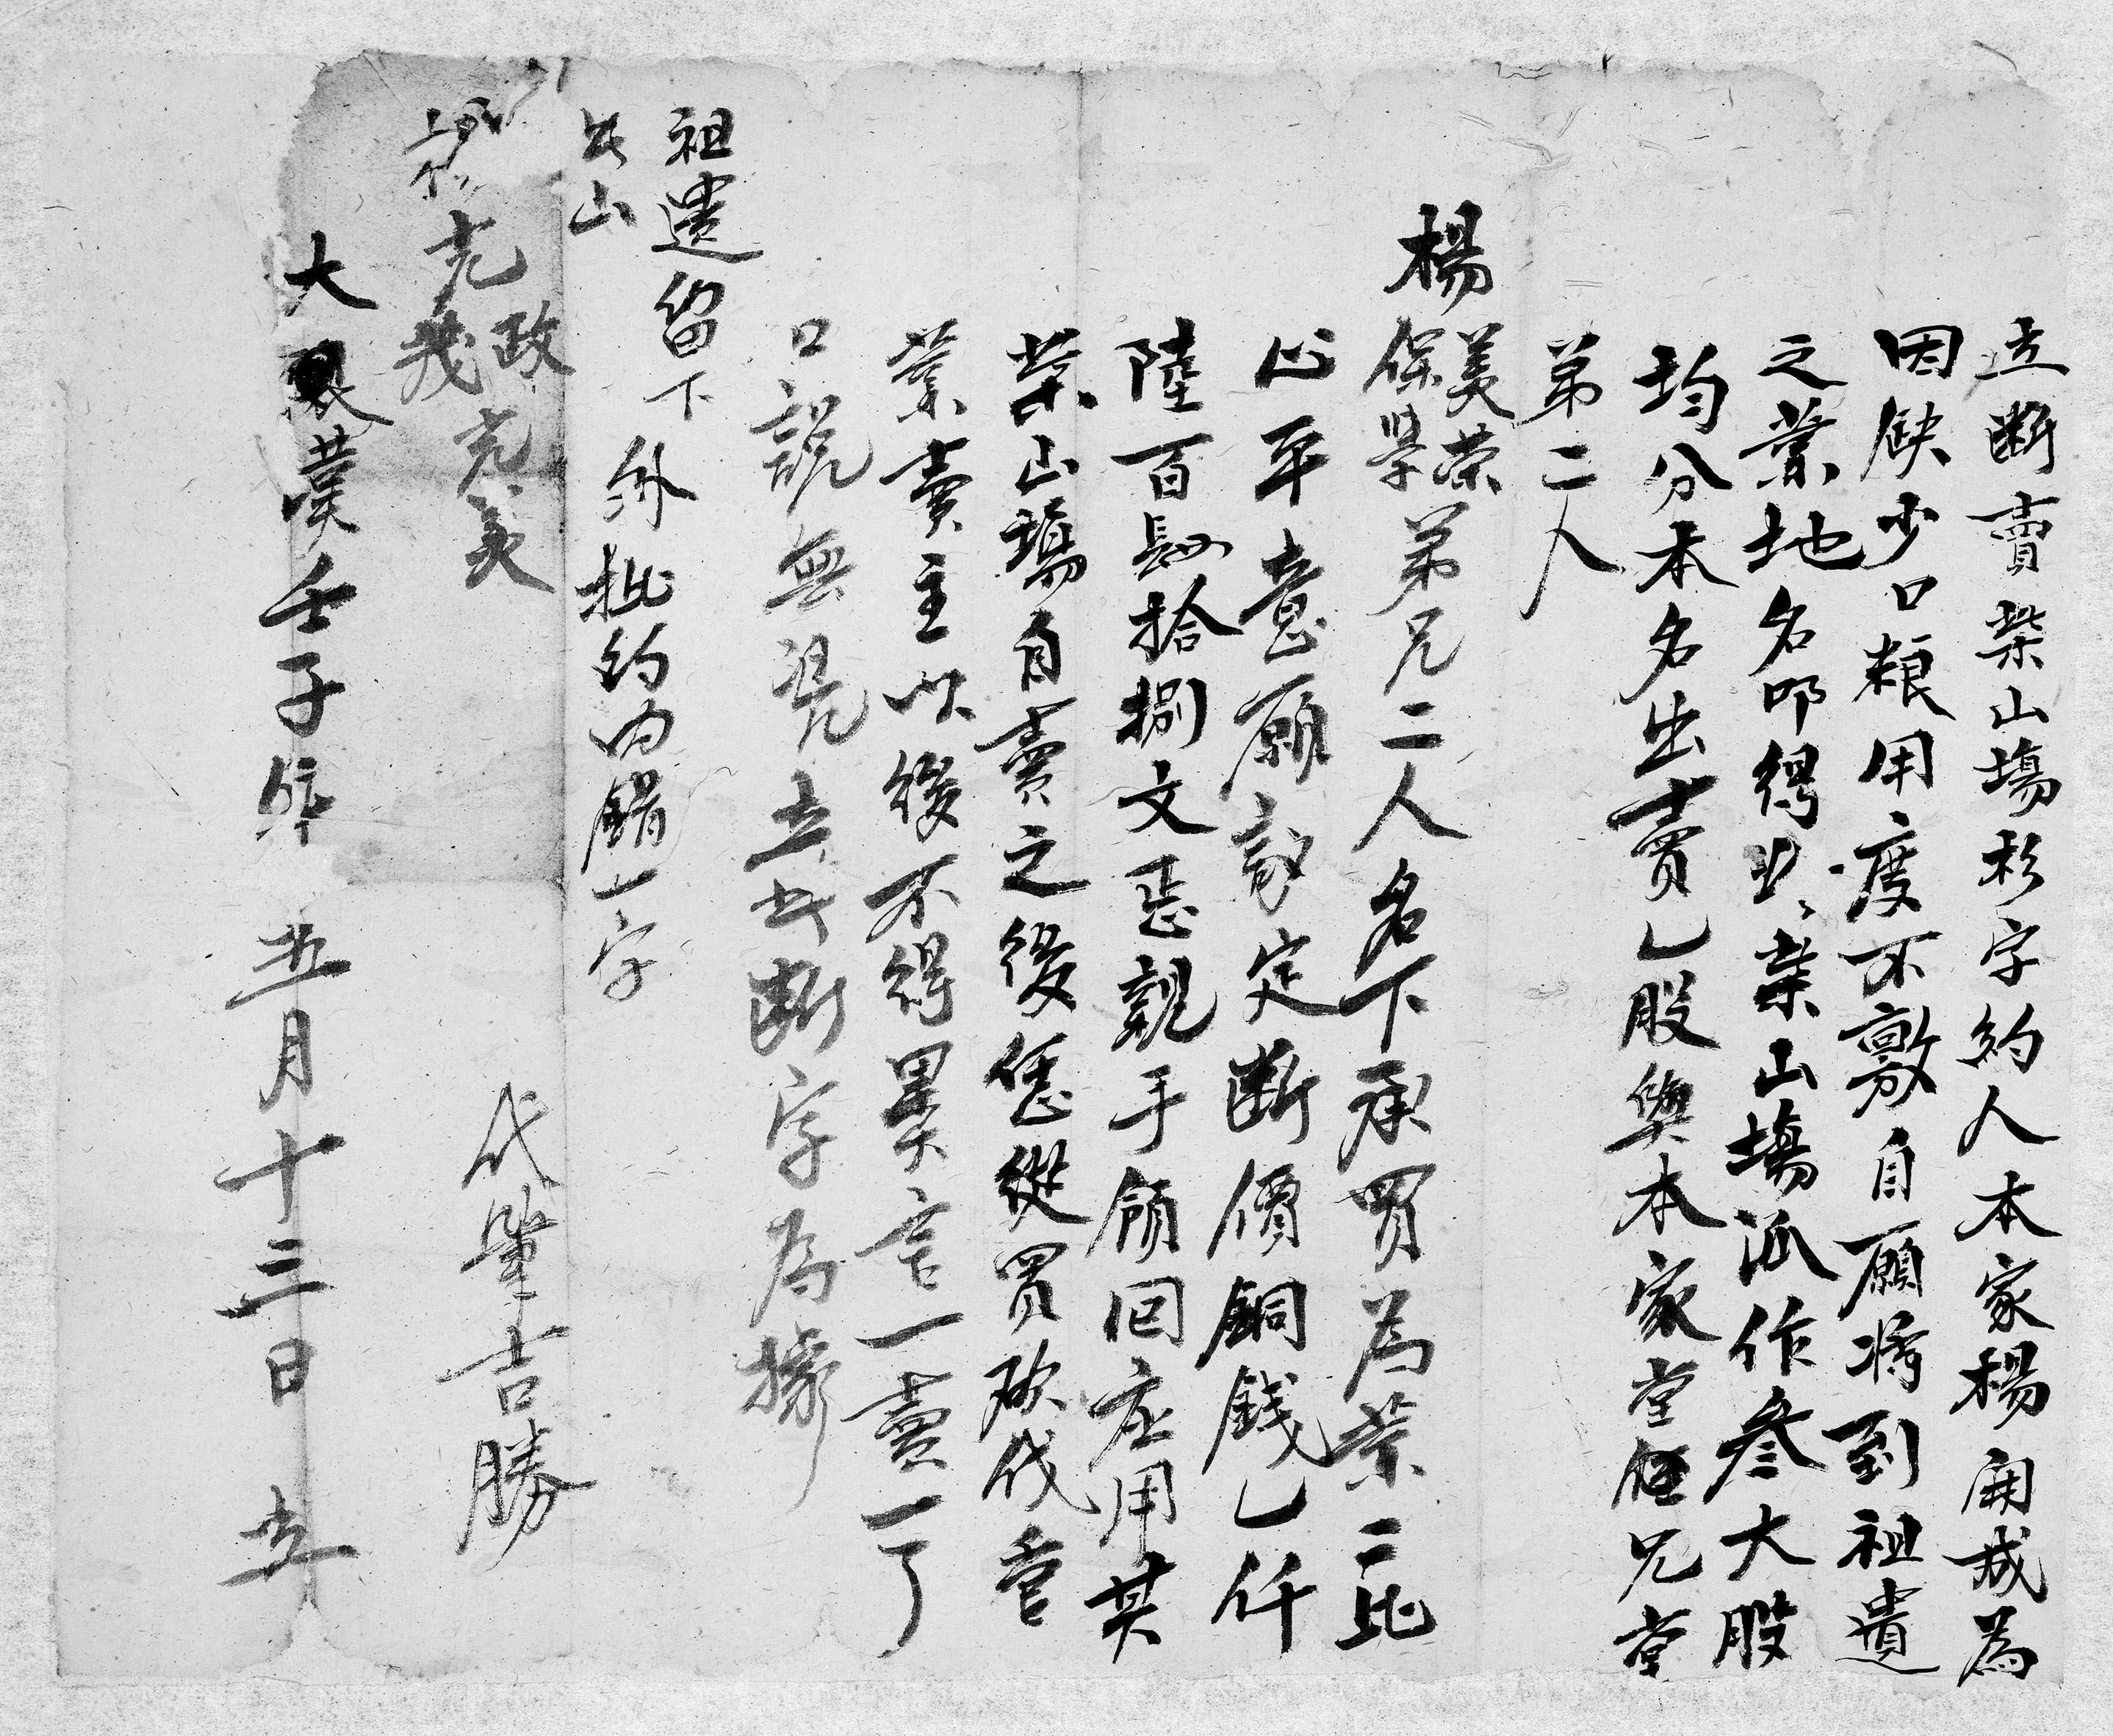 立断賣柴山塲杉字約人本家楊開成為
因缺少口粮用度不敷自願将到祖遺
之業地名叩得业業山塲派作叁大股
均分本名出賣乚股與本家堂侄兄堂
弟二人
楊美荣保學弟兄二人名下承買為業二比
心平意願議定断價銅錢乚仟
陸百㭍拾捌文正親手領回应用其
柴山塲自賣之後恁從買砍伐管
業賣主以後不得異言一賣一了
口說無憑立此断字為據
祖遺留下
此山
外批約内錯一字
光政 光美
光
代筆吉勝
大漢壬子年 五月十三日 立